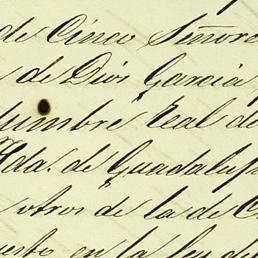 de Cinco Señore
de Dios Garcia
umbre Real de
Hda. de Guadalup
otros de la de C
uesto en la ley de